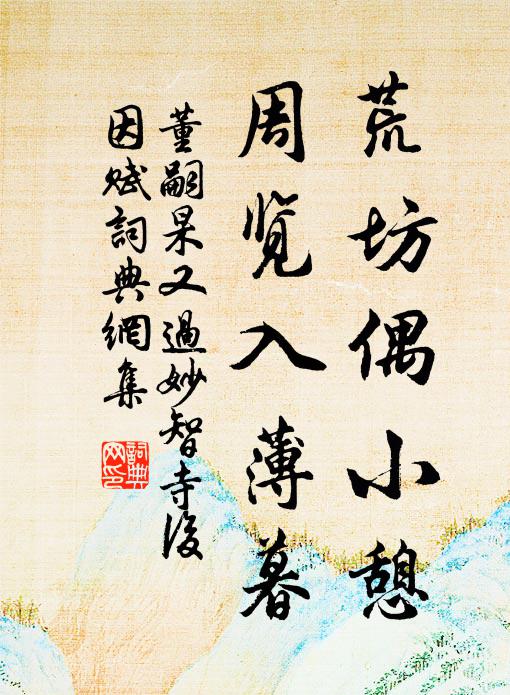 荒坊偶小憩
周览入薄暮
董嗣杲又過妙智寺後
因赋詞典網集
詞典网印